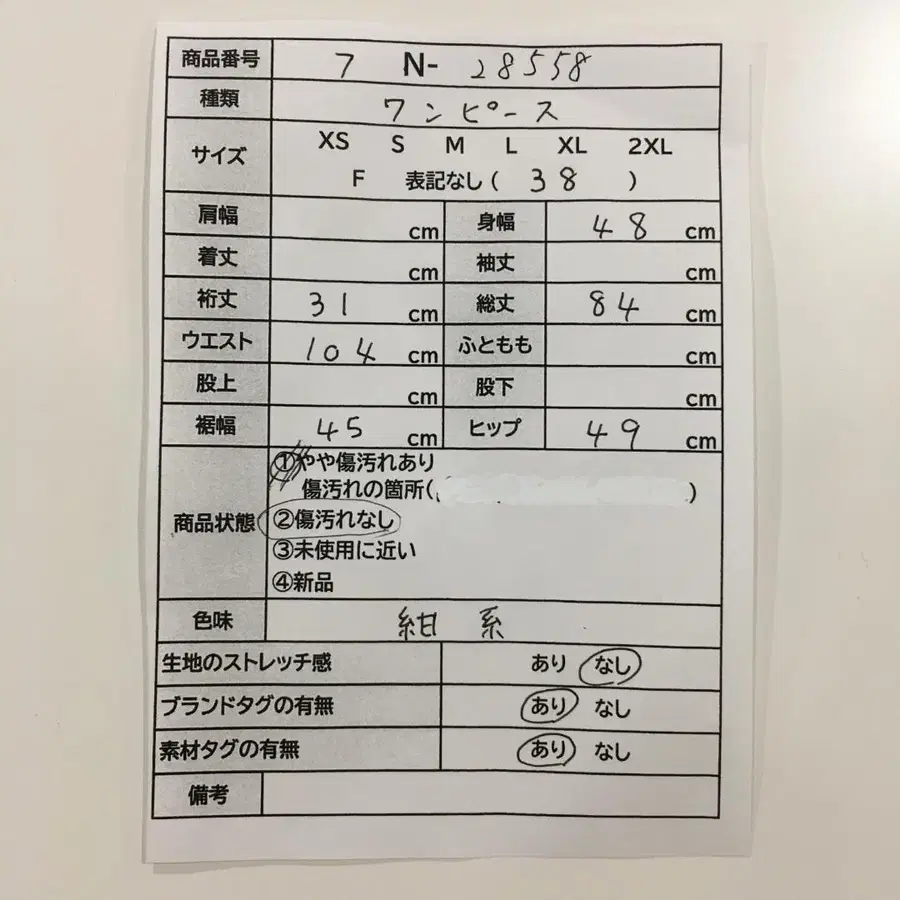 商品番号 7 N- 28558
種類 ワンピース
サイズ XS S M L XL 2XL
F 表記なし( 38 )
肩幅 cm 身幅 48 cm
着丈 cm 袖丈 cm
裄丈 31 cm 総丈 84 cm
ウエスト 104 cm ふともも cm
股上 cm 股下 cm
裾幅 45 cm ヒップ 49 cm
商品状態 ①やや傷汚れあり
傷汚れの箇所( )
②傷汚れなし
③未使用に近い
④新品
色味 紺 系
生地のストレッチ感 あり なし
ブランドタグの有無 あり なし
素材タグの有無 あり なし
備考